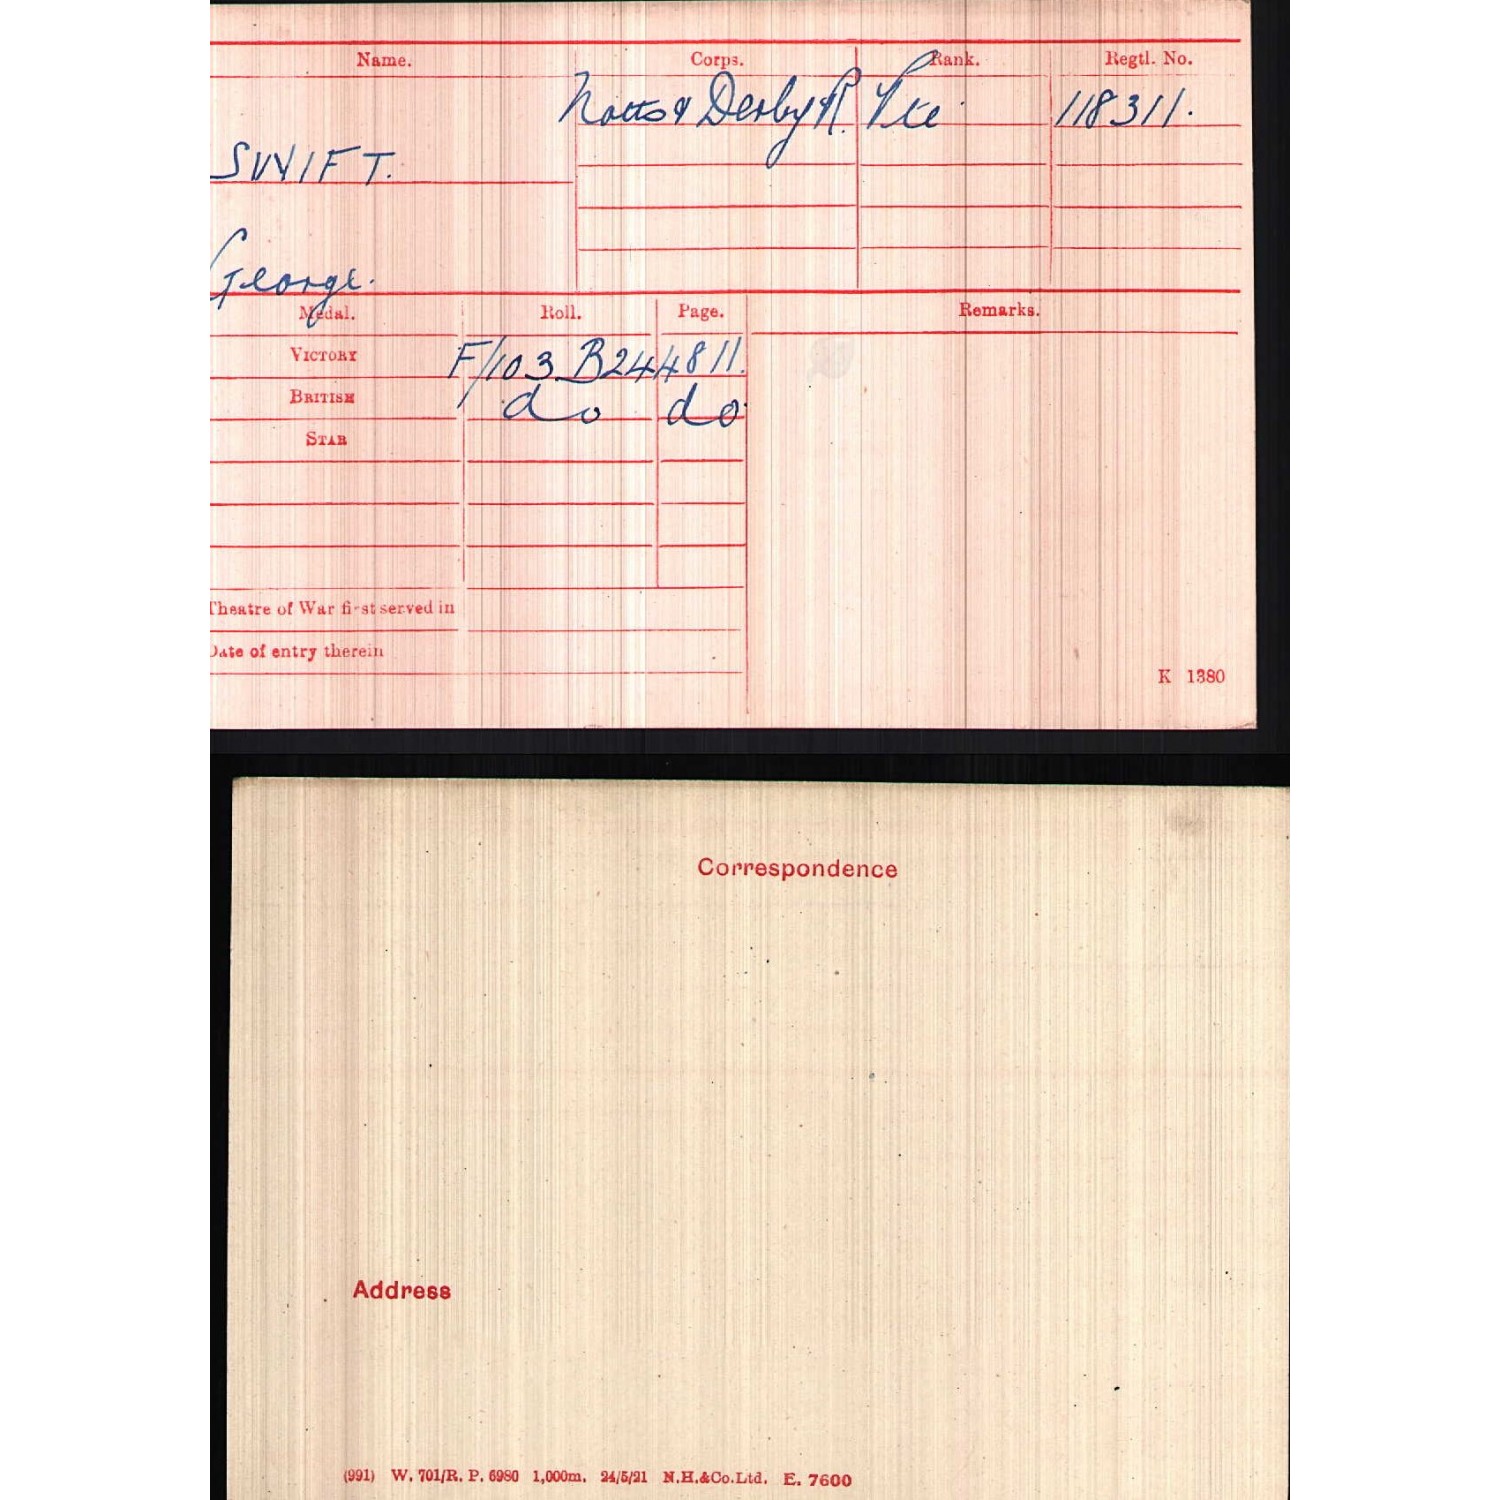 Name. Corps. Rank. Regtl. No.
Notts & Derby R. Pte 118311.
SWIFT.
George.
Medal. Roll. Page. Remarks.
VICTORY F/103 B24 4811.
BRITISH do do
STAR
Theatre of War first served in
Date of entry therein
K 1380
Correspondence
Address
(991) W. 701/R. P. 6980 1,000m. 24/5/21 N.H.&Co.Ltd. E. 7600